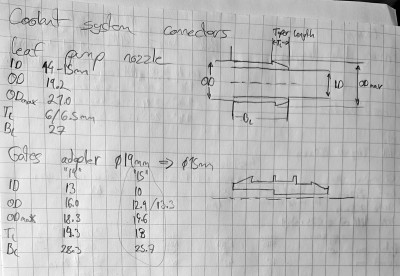 Coolant system connectors
Leaf pump nozzle
ID 14-15mm
OD 19.2
ODmax 21.0
TL 6/6.5mm
BL 27
Taper length
TL
OD
ID
ODmax
BL
Gates adapter ϕ19mm ⇒ ϕ15mm
"19" "15"
ID 13 10
OD 16.0 12.9/13.3
ODmax 18.3
TL 19.3 18
BL 28.3 25.7